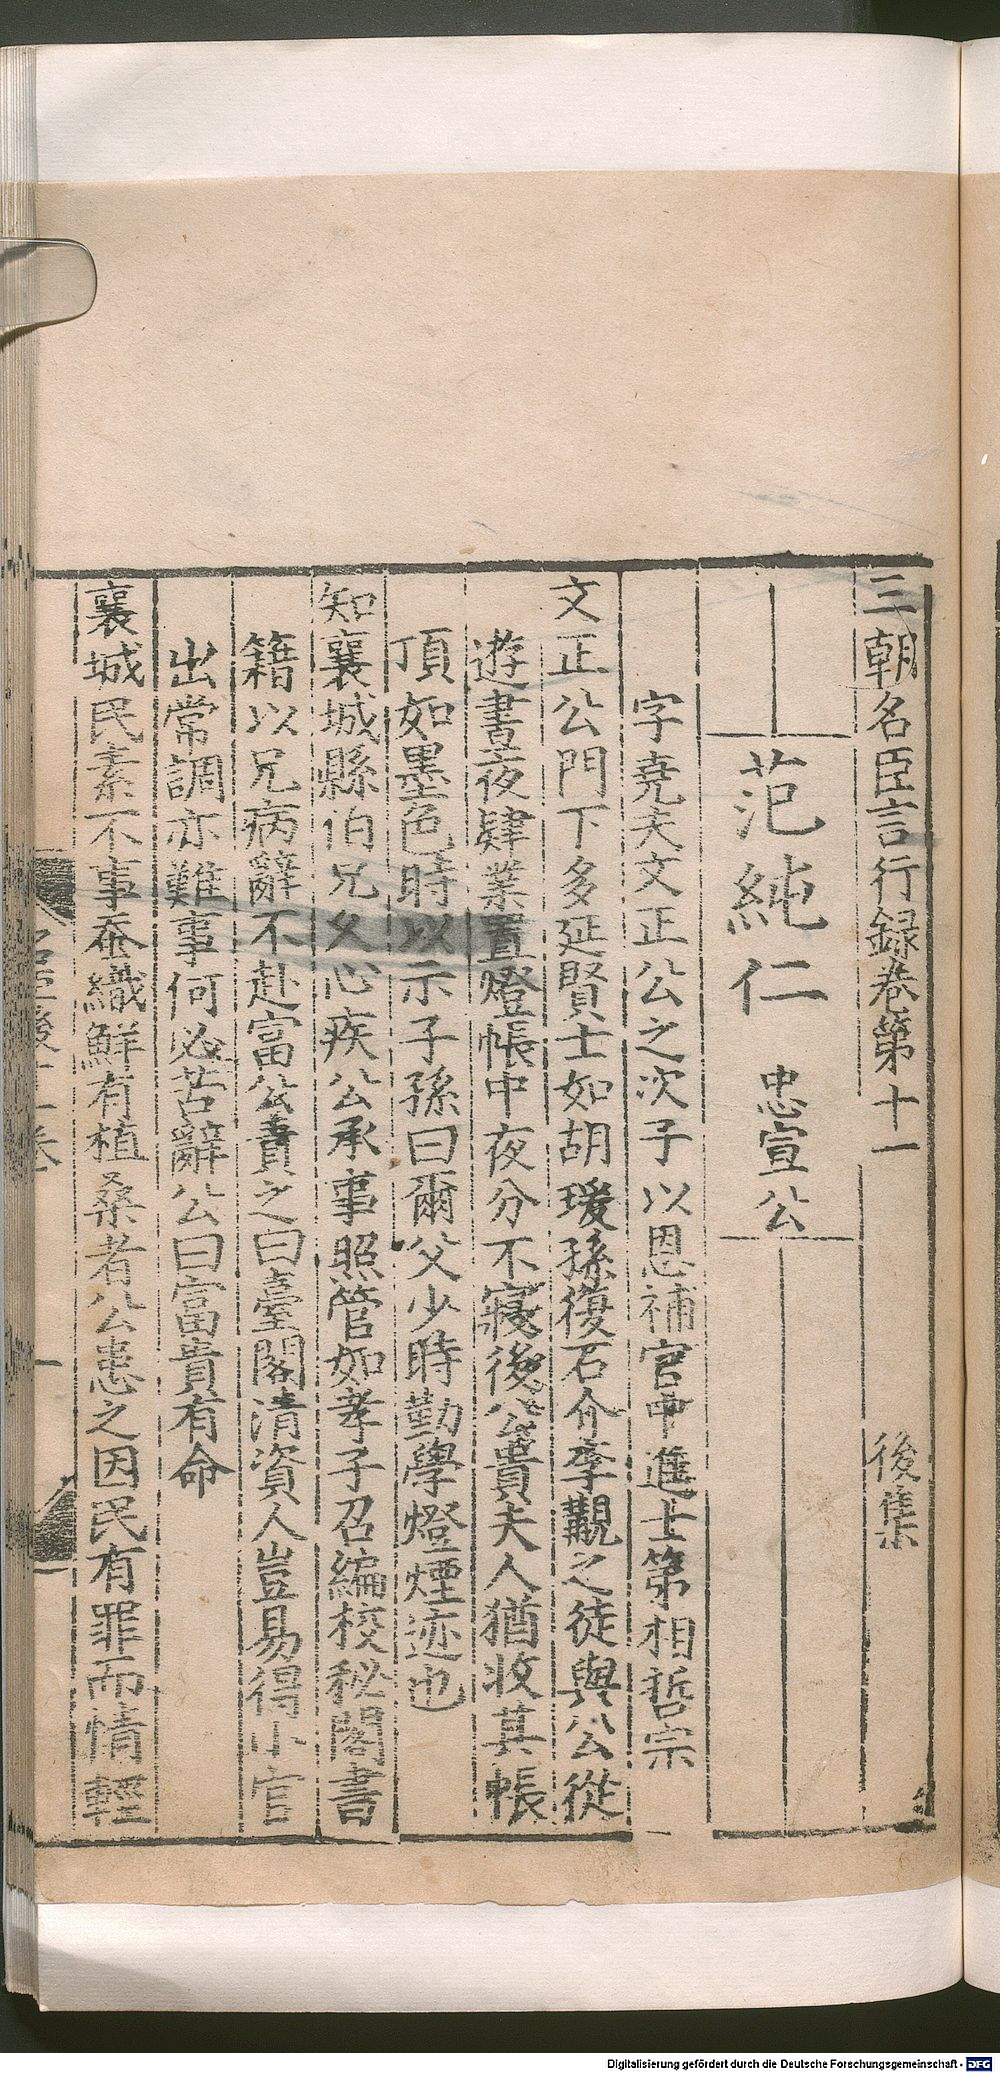 三朝名臣言行録卷第十一 後集
范純仁 忠宣公
字堯夫文正公之次子以恩補官中進士第相哲宗
文正公門下多延賢士如胡瑗孫復石介李覯之徒與公從
遊晝夜肄業置燈帳中夜分不寢後公貴夫人猶收其帳
頂如墨色時以示子孫曰爾父少時勤學燈煙迹也
知襄城縣伯兄久心疾公承事照管如孝子召編校秘閣書
籍以兄病辭不赴富公責之曰臺閣清資人豈易得小官
出常調亦難事何必苦辭公曰富貴有命
襄城民素不事蚕織鮮有植桑者公患之因民有罪而情輕
Digitalisierung gefördert durch die Deutsche Forschungsgemeinschaft - DFG